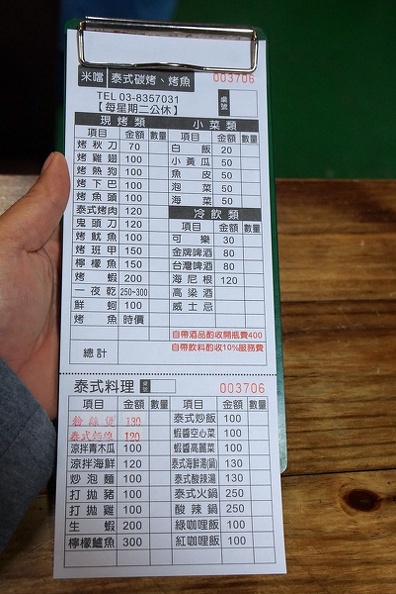 米噹 泰式碳烤、烤魚 003706
TEL 03-8357031
【每星期二公休】
桌號
現烤類 小菜類
項目 金額 數量 項目 金額 數量
烤秋刀 70 白飯 20
烤雞翅 100 小黃瓜 50
烤熱狗 100 魚皮 50
烤下巴 100 泡菜 50
烤魚頭 100 海菜 50
泰式烤肉 120 冷飲類
鬼頭刀 120 項目 金額 數量
烤魷魚 100 可樂 30
烤班甲 150 金牌啤酒 80
檸檬魚 150 台灣啤酒 80
烤蝦 200 海尼根 120
一夜乾 250~300 高梁酒
鮮蚵 100 威士忌
烤魚 時價
自帶酒品酌收開瓶費400
總計 自帶飲料酌收10%服務費
泰式料理 桌號 003706
項目 金額 數量 項目 金額 數量
粉絲煲 130 泰式炒飯 100
120 蝦醬空心菜 100
涼拌青木瓜 100 蝦醬高麗菜 100
涼拌海鮮 120 泰式海鮮湯(鍋) 130
炒泡麵 100 泰式酸辣湯 130
打拋豬 100 泰式火鍋 250
打拋雞 100 酸辣鍋 250
生蝦 200 綠咖哩飯 100
檸檬鱸魚 300 紅咖哩飯 100